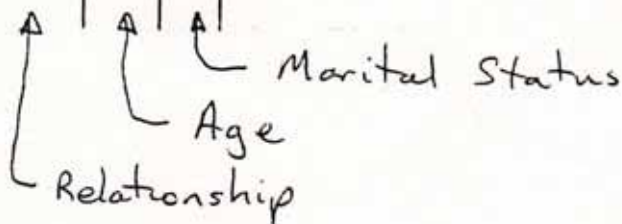 Marital Status
Age
Relationship